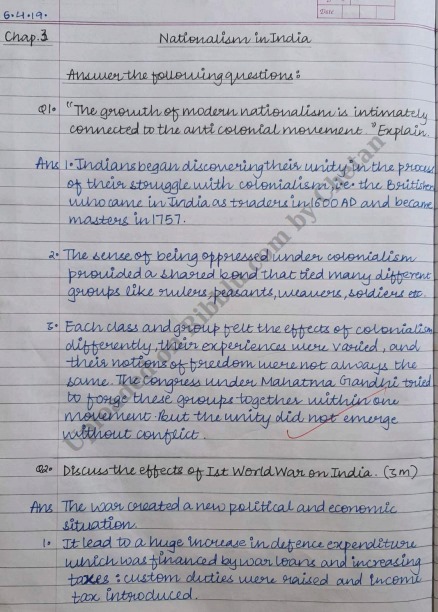 Date
6.4.19.
Chap.3 Nationalism in India
Answer the following questions:
Q1. "The growth of modern nationalism is intimately
connected to the anti colonial movement." Explain.
Ans 1. Indians began discovering their unity in the process
of their struggle with colonialism i.e. the Britishers
who came in India as traders in 1600 AD and became
masters in 1757.
2. The sense of being oppressed under colonialism
provided a shared bond that tied many different
groups like rulers, peasants, weavers, soldiers etc.
3. Each class and group felt the effects of colonialism
differently, their experiences were varied, and
their notions of freedom were not always the
same. The Congress under Mahatma Gandhi tried
to forge these groups together within one
movement. But the unity did not emerge
without conflict.
Q2. Discuss the effects of Ist World War on India. (3m)
Ans The war created a new political and economic
situation.
1. It lead to a huge increase in defence expenditure
which was financed by war loans and increasing
taxes: custom duties were raised and income
tax introduced.
by Chetan